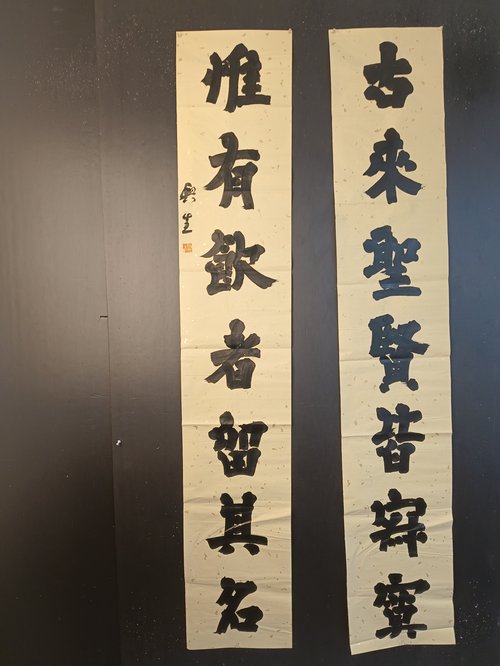 古來聖賢皆寂寞
惟有飲者留其名
興生